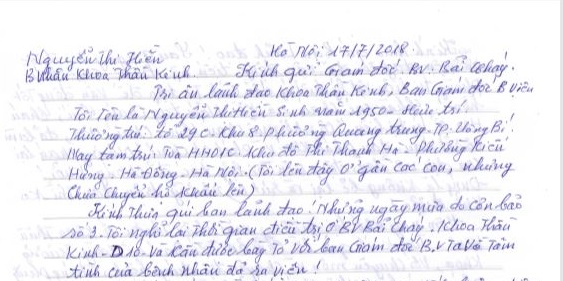 Nguyễn Thị Hiền Hà Nội 17/7/2018.
B Nhân Khoa Thần Kinh. Kính gửi Giám đốc. BV. Bãi Cháy.
Tri ân lãnh đạo Khoa Thần Kinh, Ban Giám đốc B Viện
Tôi Tên là Nguyễn Thị Hiền Sinh năm 1950 - Hưu trí.
Thường trú: tổ 29C - Khu 8 phường Quang trung - TP. Uông Bí.
Nay tạm trú: Toà HH01C Khu đô Thị Thanh Hà - Phường Kiến
Hưng - Hà Đông - Hà Nội - (Tôi lên đây ở gần các con, nhưng
Chưa Chuyển hộ Khẩu lên)
Kính Thưa quí ban lãnh đạo! Những ngày mưa do cơn bão
số 3. Tôi nghĩ lại Thời gian điều trị Ở BV Bãi Cháy. Khoa Thần
Kinh - Và Cần được bày Tỏ Với ban Giám đốc B.V Tâm
tình của bệnh nhân đã ra viện!